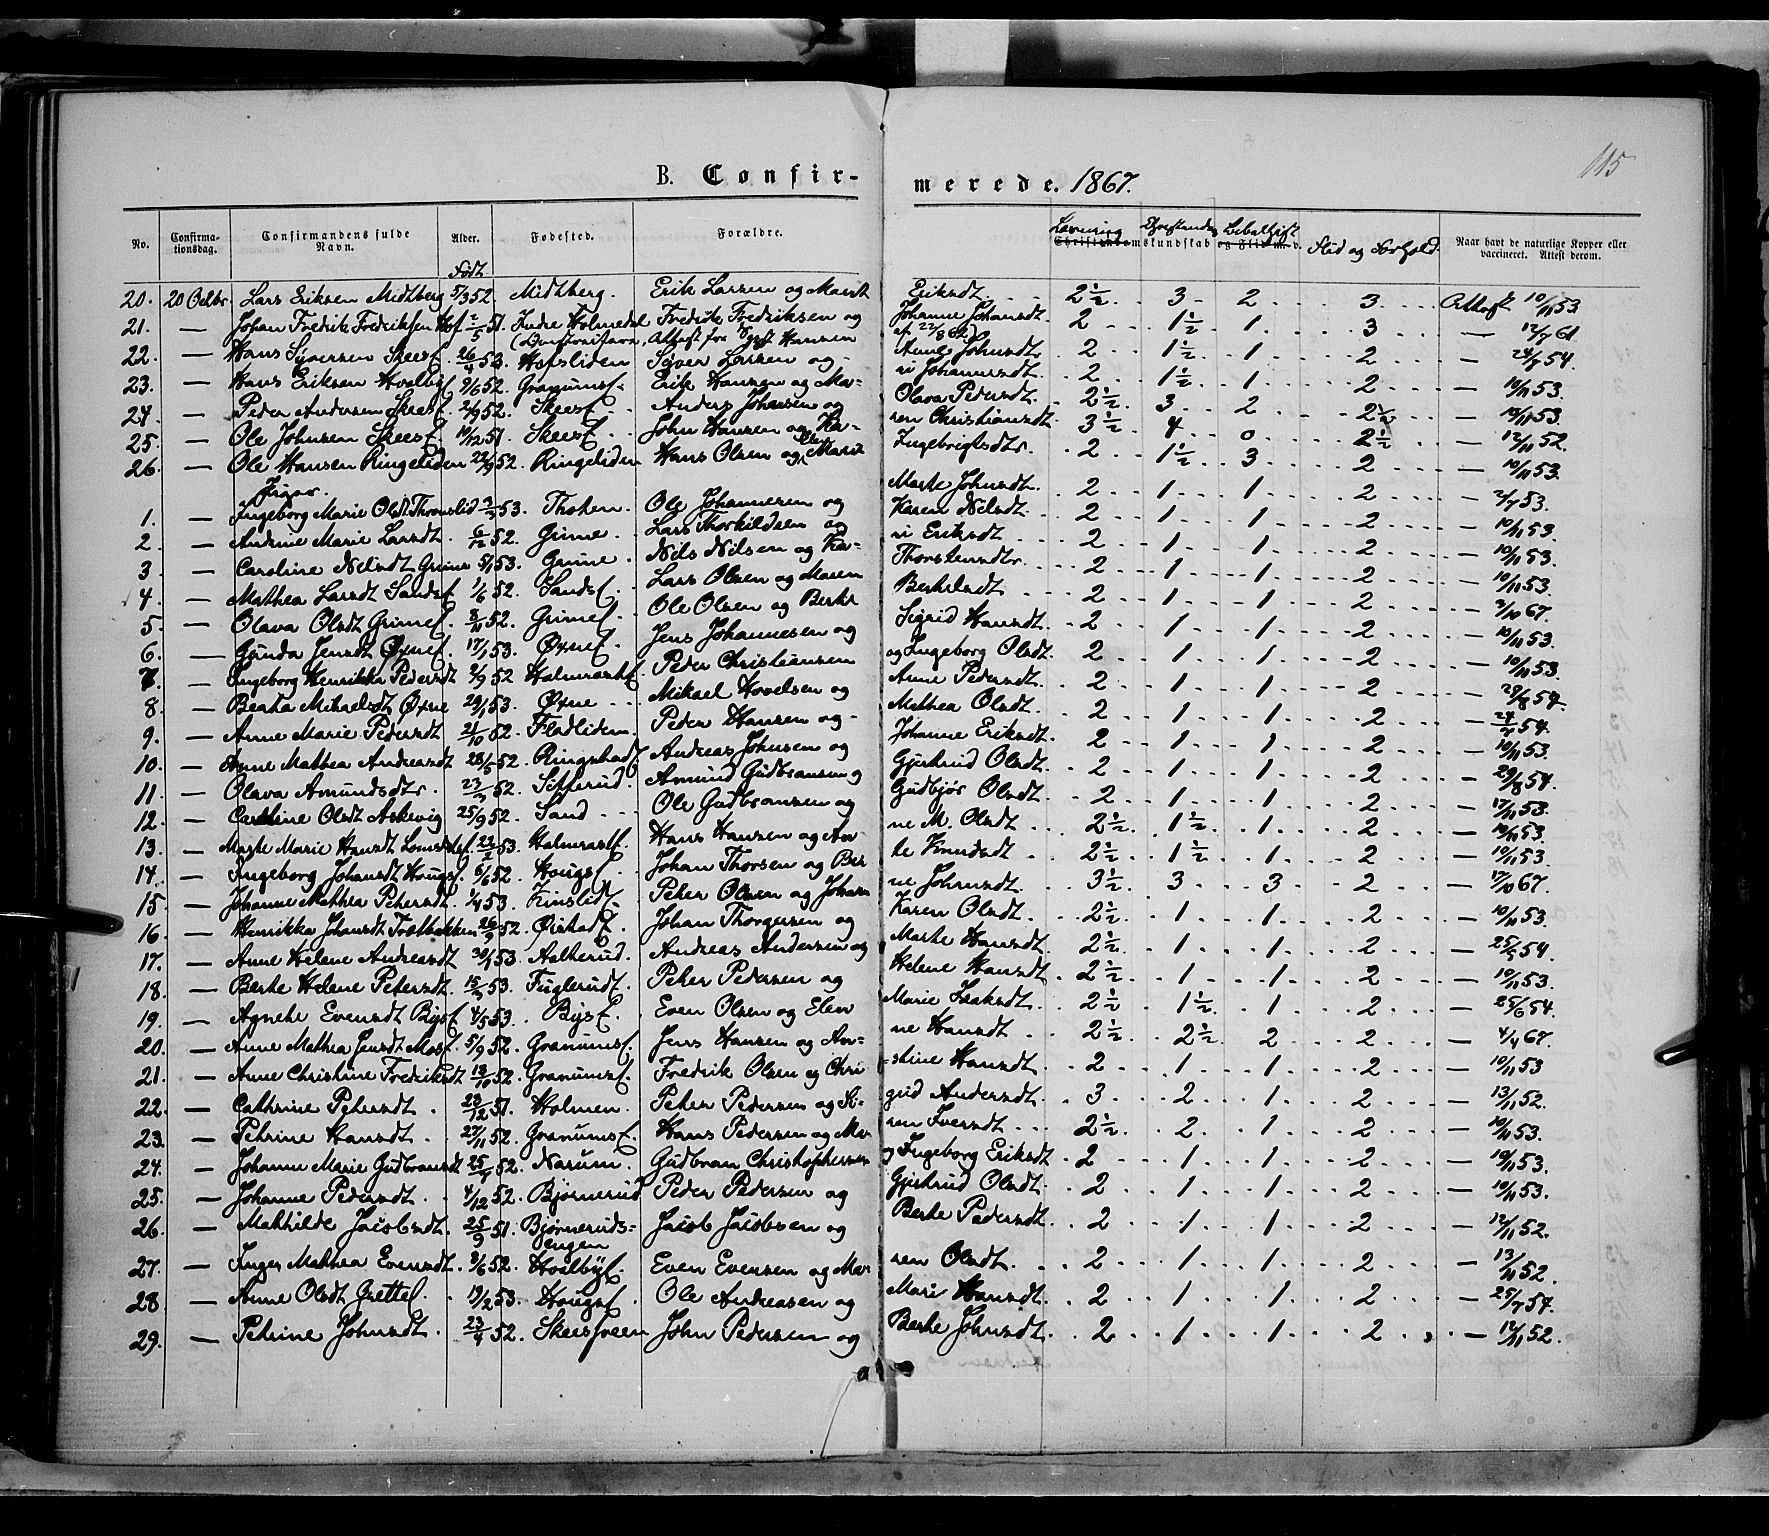 115
B. Confirmerede. 1867.
No. Confirmationsdag. Confirmandens fulde Navn. Alder. Født Fødested. Forældre. Christendomskundskab og Flid m. v. Læsning Forstand Flid og Forhold. Naar havt de naturlige Kopper eller vaccineret. Attest derom.
20. 20 Octbr. Lars Eriksen Midtberg 5/3 52. Midtberg. Erik Larsen og Marit Eriksdt. 2½ 3 2 3 Attest 10/11 53
21. — Johan Fredrik Fredriksen Hof. 2/5 51. Indre Holmedal Fredrik Fredriksen og Johanne Johansdt. 2 1½ 1 3 — 12/7 61
af 22/8 62)
22. — Hans Syversen Skees. 26/4 53. Hofsliden Syver Larsen og Anne Johnsdtr 2 1½ 1 2 — 24/7 54.
23. — Hans Eriksen Hvalbys. 9/6 52. Granums. Erik Hansen og Mari Johannesdt. 2 1½ 1 2 — 10/11 53.
24. — Peder Andersen Skees. 2/9 52. Skees. Anders Johansen og Olava Pedersdt. 2½ 3 2 2½ — 10/11 53.
25. — Ole Johnsen Skees. 10/12 51. Skees. John Hansen og Karen Christiansdt. 3½ 4 0 2½ — 12/11 52
26. — Ole Hansen Ringeliden 22/9 52. Ringeliden Hans Olsen og Ellen Marie Ingebrigtsdtr. 2 1½ 3 2 — 10/11 53.
Piger.
1. — Ingeborg Marie Olsdt. Thronslid 2/2 53. Thoten. Ole Johannesen og Marte Johnsdt. 2 1 1 2 — 2/7 53.
2. — Andrine Marie Larsdt. 6/12 52. Grime. Lars Thorkildsen og Karen Nilsdt. 2 1 1 2 — 10/11 53.
3. — Caroline Nelsdt. Grimes 5/1 53. Grime. Nils Nilsen og Kari Eriksdt. 2 1 1 2 — 10/11 53.
4. — Mathea Larsdt Sands. 1/6 52. Sands. Lars Olsen og Maren Thorstensdtr. 2 1 1 2 — 10/11 53.
5. — Olava Olsdt Grimes. 3/11 52. Grimes. Ole Olsen og Berte Bertelsdt. 2 1 1 2 — 9/10 67.
6. — Gunda Jensdt Øxnes. 17/1 53. Øxnes. Jens Johannesen og Sigrid Hansdt. 2 1 1 2 — 10/11 53.
7. — Ingeborg Henrikka Pedersdt 2/9 52 Peder Christiansen og Ingeborg Olsdt. 2 1 1 2 — 10/11 53.
8. — Beata Mikaelsdt Øxne 29/1 53. Øxne Mikael Hovelsen og Anne Pedersdt. 2 1 1 2 — 29/8 54.
9. — Anne Marie Pedersdt. 21/10 52. Fladliden. Peder Hansen og Mathea Olsdt. 2 1 1 2 — 24/7 54.
10. — Anne Mathea Andreasdt 28/5 52. Ringstads. Andreas Johnsen og Johanne Eriksdt. 2 1 1 2 — 10/11 53.
11. — Olava Amundsdtr. 23/9 52. Setterud. Amund Gudbransen og Gjertrud Olsdt. 2 1 1 2 — 29/8 54.
12. — Cathrine Olsdt Askevig 25/9 52. Sand Ole Gudbransen og Gudbjør Olsdt. 2 1 1 2 — 17/11 53.
13. — Marte Marie Hansdt 22/2 53. Hans Hansen og Anne M. Olsdt. 2½ 1½ 1 2 — 10/11 53.
14. — Ingeborg Johansdt Hougs. 6/6 52. Hougs. Johan Thorsen og Berte Knudsdt. 2½ 1½ 1 2 — 10/11 53.
15. — Johanne Mathea Petersdt. 1/4 53. Peter Olsen og Johanne Johnsdt. 3½ 3 3 2 — 17/10 67.
16. — Henrikka Johansdt Trætbakken 26/9 52. Johan Thorgersen og Karen Olsdt. 2½ 1 1 2 — 10/11 53.
17. — Anne Helene Andreasdt. 30/1 53. Aalterud. Andreas Andersen og Marte Hansdt. 2½ 1 1 2 — 25/5 54.
18. — Berte Helene Petersdt. 15/3 53. Fuglerud. Peter Pedersen og Helene Hansdt. 2½ 1 1 2 — 10/11 53.
19. — Agnete Evensdt Bys. 4/5 53. Bys. Even Olsen og Elen Marie Isaksdt. 2½ 1½ 1 2 — 25/6 54.
20. — Anne Mathea Jensdt Mos. 5/9 52. Granums. Jens Hansen og Anne Hansdt. 2½ 2½ 2 2 — 4/4 67.
21. — Anne Christine Fredriksdt 13/10 52. Granums. Fredrik Olsen og Christine Hansdt. 2 1 1 2 — 10/11 53
22. — Cathrine Petersdt. 23/12 51. Holmen. Peter Pedersen og Sigrid Andersdt. 3 2 1 2 — 13/11 52.
23. — Petrine Hansdt. 27/11 52. Granums. Hans Pedersen og Maren Iversdt. 2½ 2 1 2 — 10/11 53.
24. — Johanne Marie Gudbrandsdt 25/7 52. Narum. Gudbran Christophersen og Ingeborg Eriksdt 2 1 1 2 — 10/11 53.
25. — Johanne Pedersdt. 4/12 52. Bjørnerud Peder Pedersen og Gjertrud Olsdt. 2 1 1 2 — 10/11 53.
26. — Mathilde Jacobsdt. 25/9 51. Bjørneruds- Jacob Jacobsen og Berte Pedersdt. 2 1 1 2 — 12/11 52.
engen
27. — Inger Mathea Evensdt. 3/6 52. Hvalbys. Even Evensen og Maren Olsdt. 2 1 1 2 — 13/11 52.
28 — Anne Olsdt Grettes. 17/2 53. Hougs. Ole Andreasen og Mari Hansdt. 2 1 1 2 — 25/7 54.
29. — Petrine Johnsdt. 23/4 52. Skeesveen John Pedersen og Berte Johnsdt. 2 1 1 2 — 12/11 52.